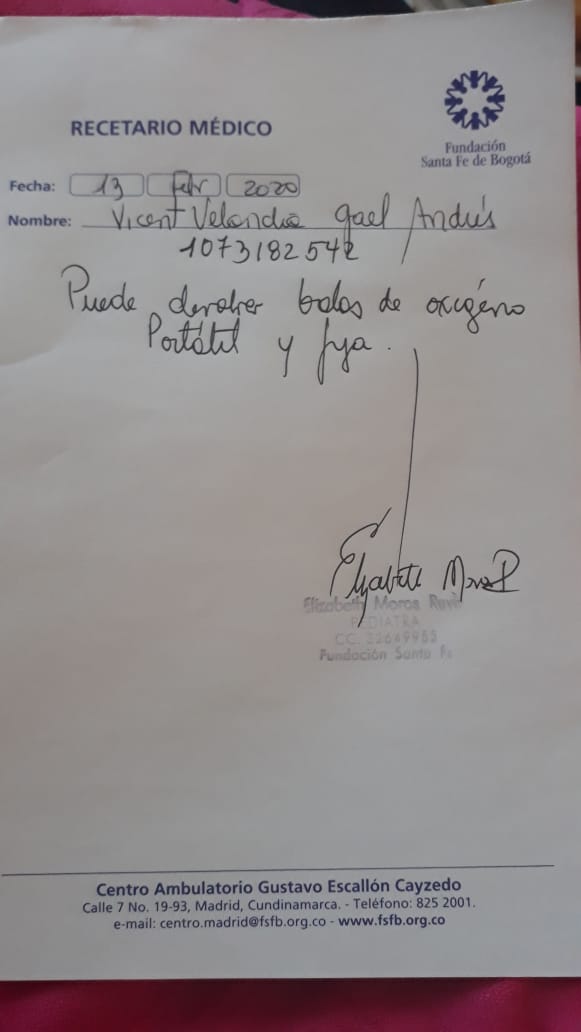 RECETARIO MÉDICO
Fundación
Santa Fe de Bogotá
Fecha: 13 febr 2020
Nombre: Vicent Velandia Gael Andrés
1073182542
Puede devolver balas de oxigéno
Portátil y fija.
Elizabeth Moros R
Elizabeth Moros
PEDIATRA
CC. 22649985
Fundación Santa Fe
Centro Ambulatorio Gustavo Escallón Cayzedo
Calle 7 No. 19-93, Madrid, Cundinamarca. - Teléfono: 825 2001.
e-mail: centro.madrid@fsfb.org.co - www.fsfb.org.co